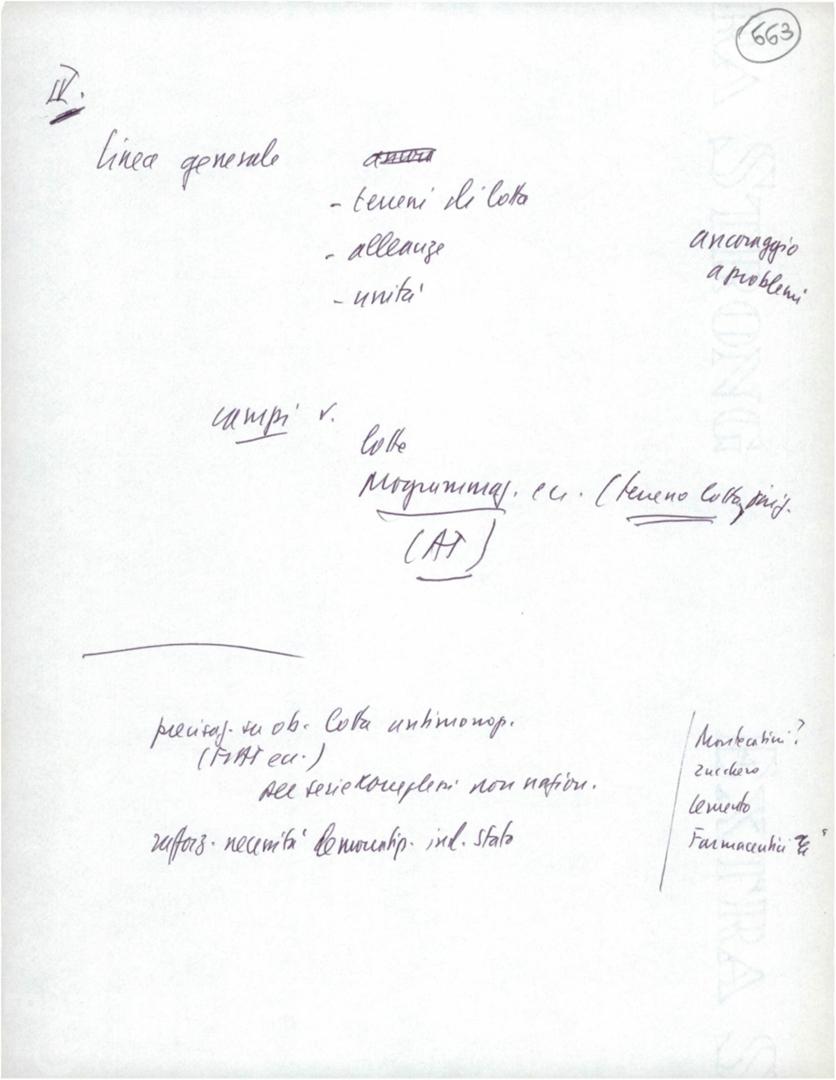 663
IV.
linea generale
- terreni di lotta
- alleanze
- unità
ancoraggio
a problemi
campi v.
lotte
Programmaz. ec. (terreno lotta
(AT)
precisaz. su ob. lotta antimonop.
(FIAT ecc.)
non nazion.
rafforz. necessità ind. stato
Montecatini?
zucchero
cemento
Farmaceutici